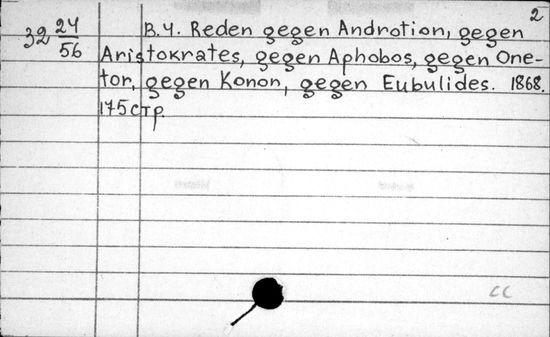 2
32 24/56 B.4. Reden gegen Androtion, gegen
Aristokrates, gegen Aphobos, gegen One-
tor, gegen Konon, gegen Eubulides. 1868.
175 стр.
cc